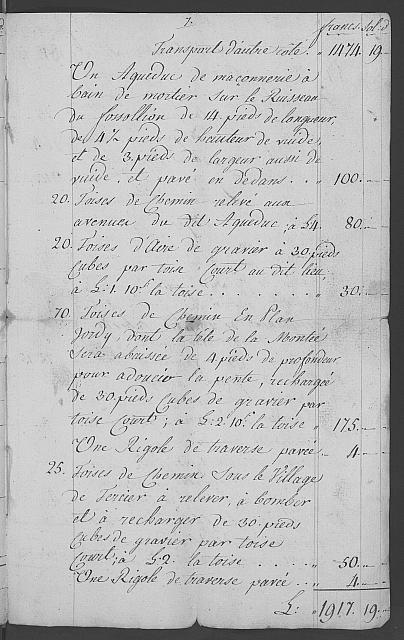 7.
francs. sol. d
Transport d'autre coté. " 1474. 19
Un Aqueduc de maçonnerie à
bain de mortier sur le Ruisseau
du fossillion de 14 pieds de longueur,
de 4½ pieds de hauteur de vuide,
et de 3 pieds de largeur aussi de
vuide, et pavé en dedans . . " 100.
20. Toises de Chemin relevé aux
avenues du dit Aqueduc, à L4. 80.
20. Toises d'Aire de gravier à 30 pieds
Cubes par toise Court au dit lieu
à L: 1. 10s. la toise . . . . . . . . " 30.
70. Toises de Chemin En Plan
Jordy, dont la tête de la Montée
Sera abaissée de 4 pieds de profondeur
pour adoucir la pente, rechargée
de 30 pieds Cubes de gravier par
toise Court; à L: 2. 10s. la toise " 175.
Une Rigole de traverse pavée . . 4.
25. Toises de Chemin Sous le Village
de Tercier à relever, à bomber
et à recharger de 30. pieds
Cubes de gravier par toise
Court; à L: 2. la toise . . . . . . 50.
Une Rigole de traverse pavée . . " 4.
L: " 1917. 19.